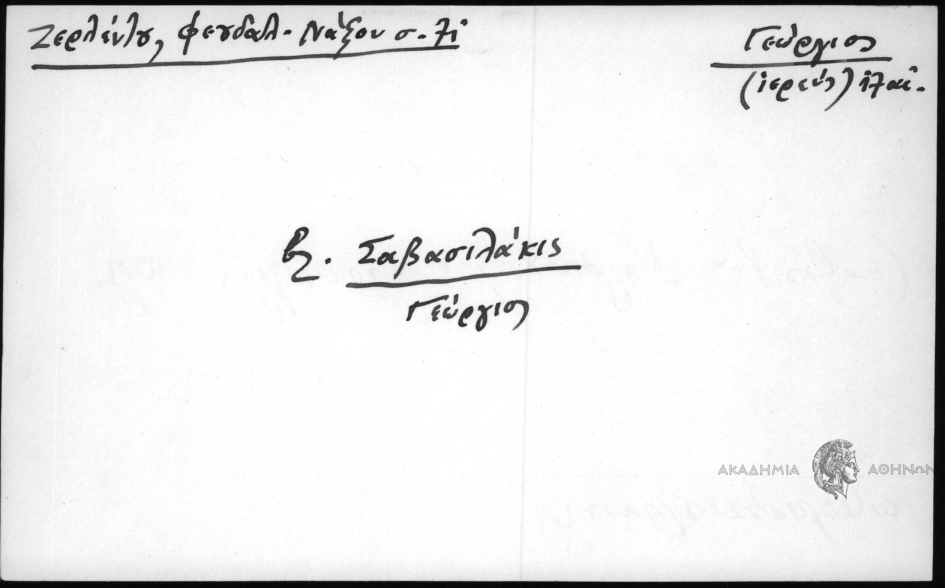 Ζερλέντου, Φεουδαλ. Νάξου σ.
Γεώργιος
(ἱερεύς)
βλ. Σαβασιλάκις
Γεώργιος
ΑΚΑΔΗΜΙΑ ΑΘΗΝΩΝ